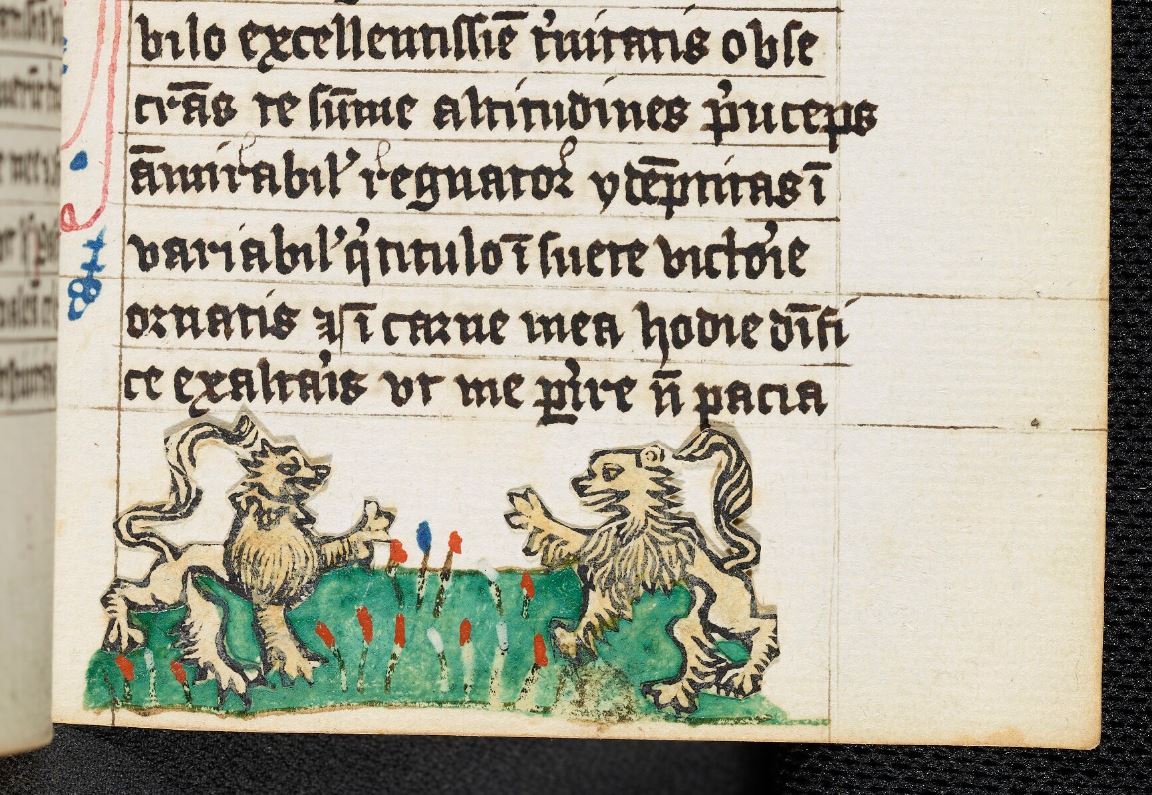 bilo excellentissīe tͥnitatis obse
crās te sūme altitudines pͥnceps
āmirabil' regnator ydēptitas ī
variabil' qͥ titulo ī suete victoͥie
ornatis ⁊ ī carne mea hodie dīfi
ce exaltaͥis vt me ꝑire n̄ pacia